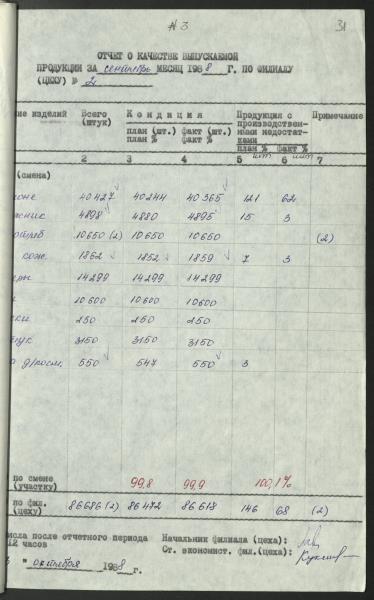 № 3
31
ОТЧЕТ О КАЧЕСТВЕ ВЫПУСКАЕМОЙ
ПРОДУКЦИИ ЗА сентябрь МЕСЯЦ 1988 Г. ПО ФИЛИАЛУ
(ЦЕХУ) № 2
ие изделий Всего (штук) Кондиция Продукция с производственными недостатками Примечание
план (шт.) % факт (шт.) % план % шт факт % шт
2 3 4 5 6 7
(смена)
40427 40244 40365 121 62
4898 4880 4895 15 3
10650 (2) 10650 10650 (2)
кож. 1862 1852 1859 7 3
14299 14299 14299
10600 10600 10600
250 250 250
3150 3150 3150
д/косм. 550 547 550 3
по смене (участку) 99,8 99,9 100,1%
по фил. (цеху) 86686 (2) 86472 86618 146 68 (2)
исла после отчетного периода
12 часов
Начальник филиала (цеха):
От. экономист. фил.(цеха):
" октября 1988 г.